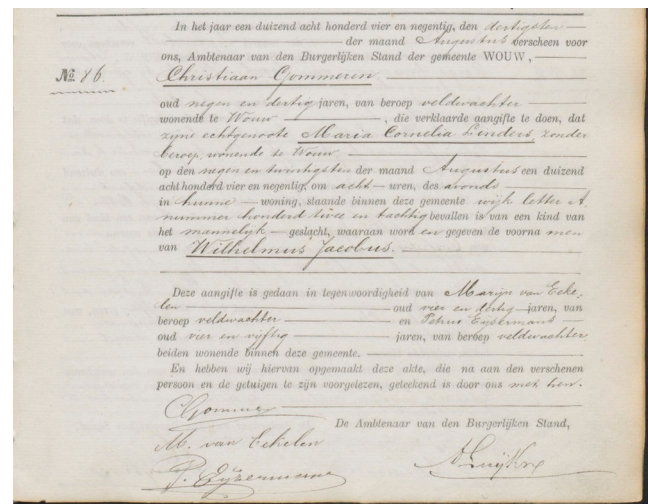 In het jaar een duizend acht honderd vier en negentig, den dertigsten
der maand Augustus verscheen voor
ons, Ambtenaar van den Burgerlijken Stand der gemeente WOUW,
№ 86.
Christiaan Gommeren.
oud negen en dertig jaren, van beroep veldwachter
wonende te Wouw, die verklaarde aangifte te doen, dat
zijne echtgenoote Maria Cornelia Linders, zonder
beroep, wonende te Wouw
op den negen en twintigsten der maand Augustus een duizend
acht honderd vier en negentig, om acht uren, des avonds
in hunne woning, staande binnen deze gemeente wijk letter A
nummer honderd twee en tachtig bevallen is van een kind van
het mannelijk geslacht, waaraan word en gegeven de voorna men
van Wilhelmus Jacobus.
Deze aangifte is gedaan in tegenwoordigheid van Marijn van Eeke,
len oud vier en dertig jaren, van
beroep veldwachter en Petrus Eijzermans
oud vier en vijftig jaren, van beroep veldwachter
beiden wonende binnen deze gemeente.
En hebben wij hiervan opgemaakt deze akte, die na aan den verschenen
persoon en de getuigen te zijn voorgelezen, geteekend is door ons met hen.
De Ambtenaar van den Burgerlijken Stand,
M. van Eekelen